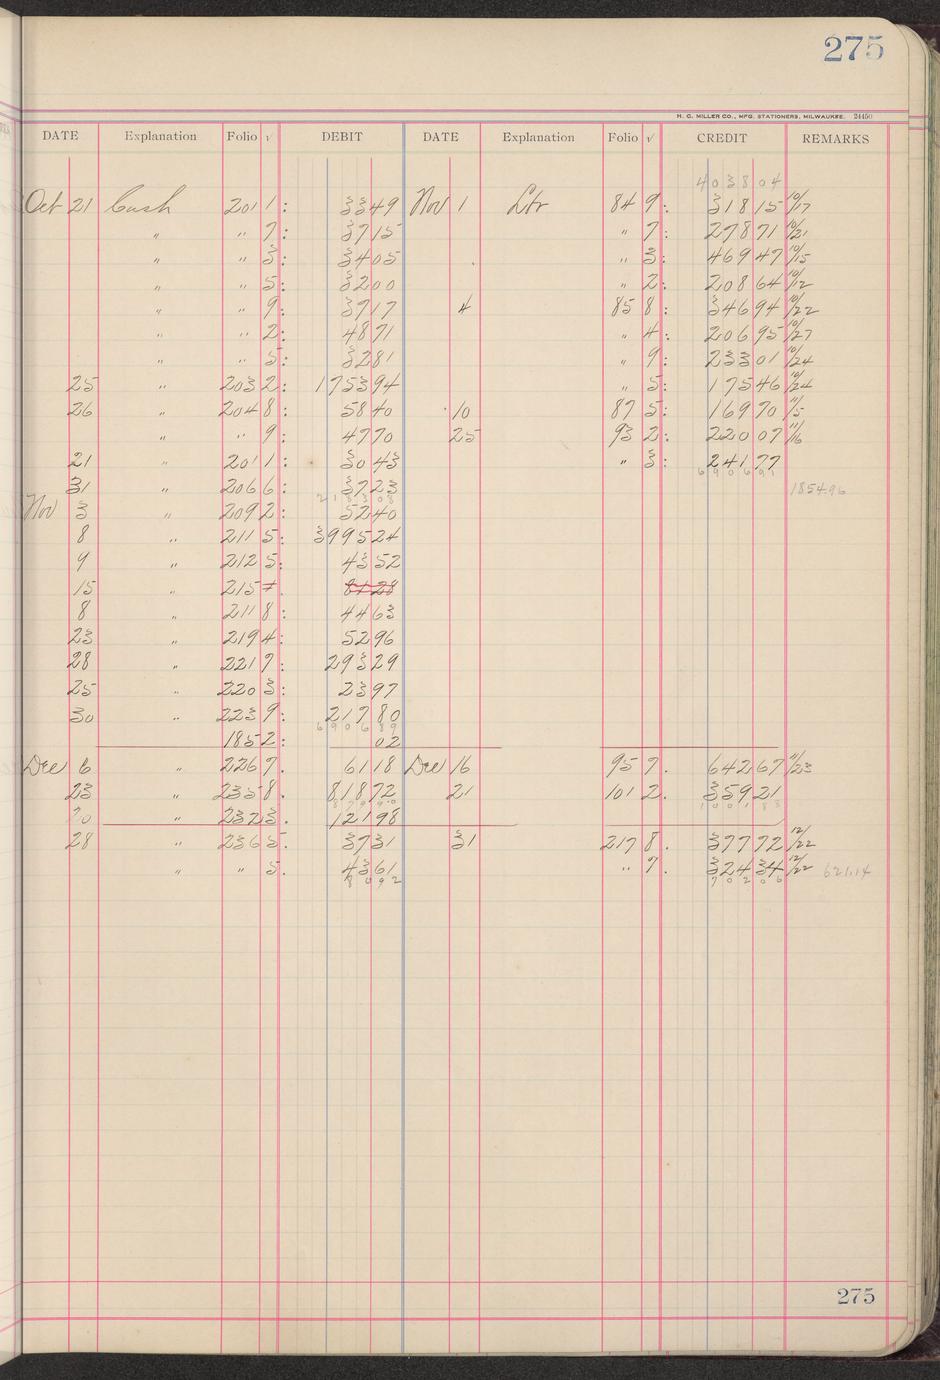 275
H. C. MILLER CO., MFG. STATIONERS, MILWAUKEE. 24450
DATE Explanation Folio √ DEBIT DATE Explanation Folio √ CREDIT REMARKS
4038 04
Oct 21 Cash 201 1: 33 49 Nov 1 Ltr 84 9: 318 15 10/17
" " 7: 37 15 " 7: 278 71 10/21
" " 3: 34 05 " 3: 469 47 10/15
" " 5: 32 00 " 2: 208 64 10/12
" " 9: 37 17 4 85 8: 346 94 10/22
" " 2: 48 71 " 4: 206 95 10/27
" " 5: 32 81 " 9: 233 01 10/24
25 " 203 2: 1753 94 " 5: 175 46 10/24
26 " 204 8: 58 40 10 87 5: 169 70 11/5
" " 9: 47 70 25 93 2: 220 07 11/16
21 " 201 1: 30 43 " 3: 241 77
6906 91
31 " 206 6: 37 23 1854.96
2183 08
Nov 3 " 209 2: 52 40
8 " 211 5: 3995 24
9 " 212 5: 43 52
15 " 215 7. 81 28
8 " 211 8: 44 63
23 " 219 4: 52 96
28 " 221 7: 293 29
25 " 220 3: 23 97
30 " 223 9: 217 80
6906 89
185 2: 02
Dec 6 " 226 7. 61 18 Dec 16 95 7. 642 67 11/23
23 " 235 8. 818 72 21 101 2. 359 21
20 " 232 3. 121 98
28 " 236 5. 37 31 31 217 8. 377 72 12/22
" " 5. 43 61 " 7. 324 34 12/22 621.14
80 92 702 06
275